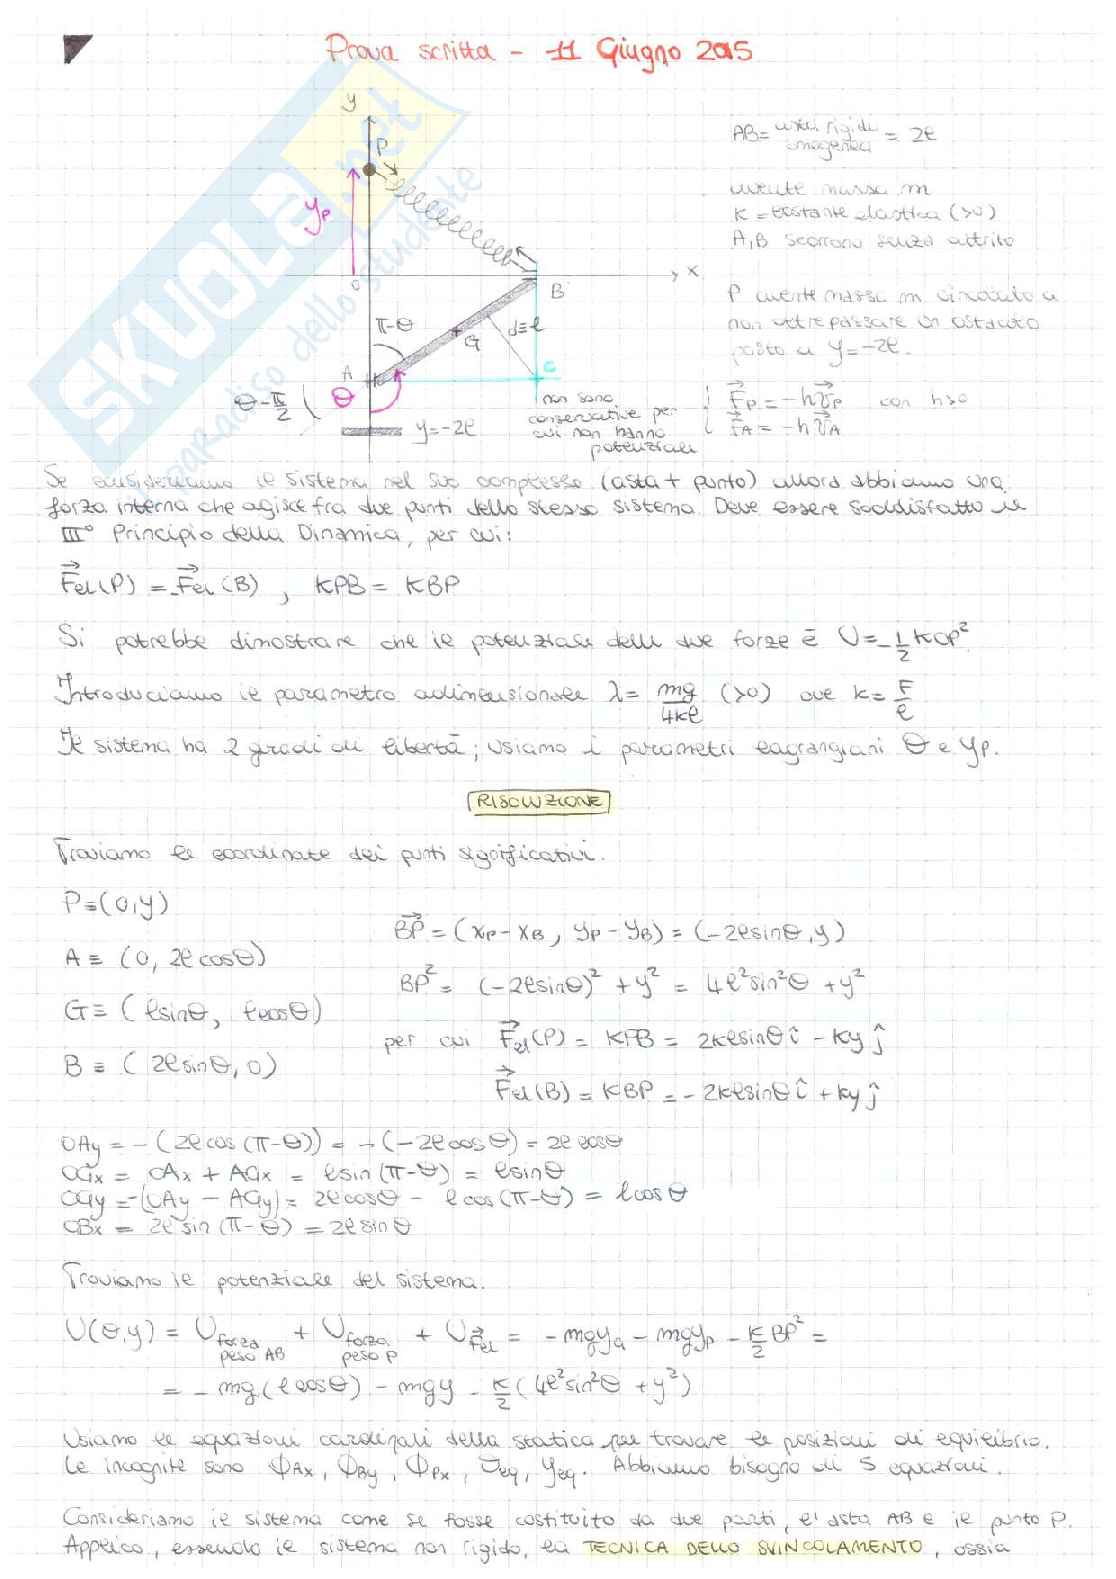 Prova scritta - 11 Giugno 2015
SKUOLA.net
il paradiso dello studente
y
P
yP
O
x
B
π-θ
G
d=l
A
θ
C
θ-π/2
y=-2l
AB = asta rigida omogenea = 2l
avente massa m
K = costante elastica (>0)
A,B scorrono senza attrito
P avente massa m vincolato a
non oltrepassare un ostacolo
posto a y=-2l.
non sono
conservative per
cui non hanno
potenziali
F⃗P = -h v⃗P con h>0
F⃗A = -h v⃗A
Se consideriamo il sistema nel suo complesso (asta + punto) allora abbiamo una
forza interna che agisce fra due punti dello stesso sistema. Deve essere soddisfatto il
III° Principio della Dinamica, per cui:
F⃗el(P) = -F⃗el(B) , KPB = KBP
Si potrebbe dimostrare che il potenziale delle due forze è U = -1/2 KOP²
Introduciamo il parametro adimensionale λ = mg/4kl (>0) ove k = F/l
Il sistema ha 2 gradi di libertà; usiamo i parametri lagrangiani θ e yP.
RISOLUZIONE
Troviamo le coordinate dei punti significativi.
P≡(0,y)
A ≡ (0, 2lcosθ)
G ≡ (lsinθ, lcosθ)
B ≡ (2lsinθ, 0)
BP⃗ = (xP-xB, yP-yB) = (-2lsinθ, y)
BP² = (-2lsinθ)² + y² = 4l²sin²θ + y²
per cui F⃗el(P) = KPB = 2klsinθ î - ky ĵ
F⃗el(B) = KBP = -2klsinθ î + ky ĵ
OAy = -(2lcos(π-θ)) = -(-2lcosθ) = 2lcosθ
OGx = OAx + AGx = lsin(π-θ) = lsinθ
OGy = -(OAy - AGy) = 2lcosθ - lcos(π-θ) = lcosθ
OBx = 2lsin(π-θ) = 2lsinθ
Troviamo il potenziale del sistema.
U(θ,y) = U forza peso AB + U forza peso P + U F⃗el = -mgyG - mgyP - K/2 BP² =
= -mg(lcosθ) - mgy - K/2 (4l²sin²θ + y²)
Usiamo le equazioni cardinali della statica per trovare le posizioni di equilibrio.
Le incognite sono ΦAx, ΦBy, ΦPx, θeq, yeq. Abbiamo bisogno di 5 equazioni.
Consideriamo il sistema come se fosse costituito da due parti, l'asta AB e il punto P.
Applico, essendo il sistema non rigido, la TECNICA DELLO SVINCOLAMENTO, ossia